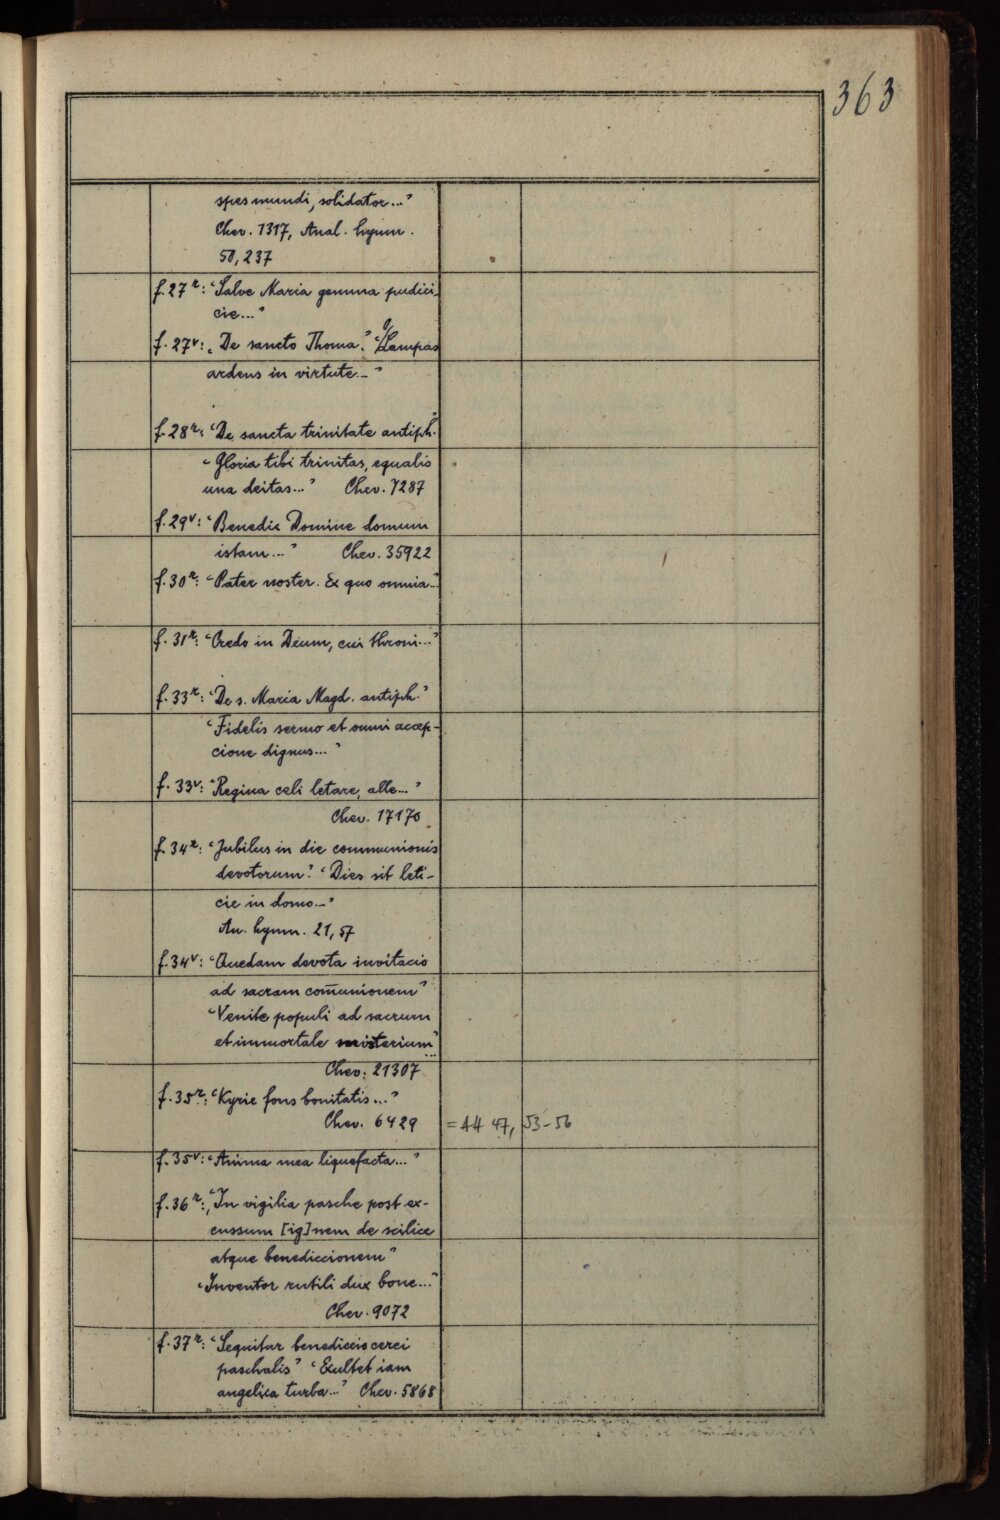 363
spes mundi, solidator..."
Chev. 1317, Anal. hymn.
50, 237
f. 27r: "Salve Maria gemma pudici-
cie..."
f. 27v: "De sancto Thoma." "Lampas
ardens in virtute..."
f. 28r: "De sancta trinitate antiph."
"Gloria tibi trinitas, equalis
una deitas..." Chev. 7287
f. 29v: "Benedic Domine domum
istam..." Chev. 35922
f. 30r: "Pater noster. Ex quo omnia..."
f. 31r: "Credo in Deum, cui throni..."
f. 33r: "De s. Maria Magd. antiph."
"Fidelis sermo et omni accep-
cione dignus..."
f. 33v: "Regina celi letare, alle..."
Chev. 17170
f. 34r: "Jubilus in die communionis
devotorum." "Dies sit leti-
cie in domo..."
An. hymn. 21, 57
f. 34v: "Quedam devota invitacio
ad sacram com̄unionem"
"Venite populi ad sacrum
et immortale misterium..."
Chev. 21307
f. 35r: "Kyrie fons bonitatis..."
Chev. 6429 = AH 47, 53-56
f. 35v: "Anima mea liquefacta..."
f. 36r: "In vigilia pasche post ex-
cussum [ig]nem de scilice
atque benediccionem"
"Inventor rutili dux bone..."
Chev. 9072
f. 37r: "Sequitur benediccio cerei
paschalis" "Exultet iam
angelica turba..." Chev. 5868